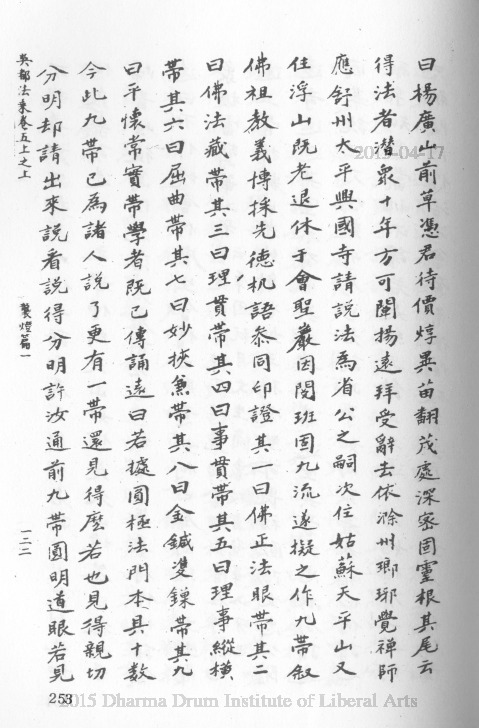 曰楊廣山前草憑君待價焞異苗翻茂處深密固靈根其尾云
得法者潛衆十年方可闡揚遠拜受辭去依滁州瑯琊覺禪師
應舒州太平興國寺請說法為省公之嗣次住姑蘇天平山又
住浮山既老退休于會聖巖因閱班固九流遂擬之作九帶叙
佛祖教義博採先德机語叅同印證其一曰佛正法眼帶其二
曰佛法藏帶其三曰理貫帶其四曰事貫帶其五曰理事縱橫
帶其六曰屈曲帶其七曰妙挾兼帶其八曰金鍼雙鎖帶其九
曰平懷常實帶學者既已傳誦遠曰若據圓極法門本具十數
今此九帶已為諸人說了更有一帶還見得麼若也見得親切
分明却請出來說看說得分明許汝通前九帶圓明道眼若見
吳都法乘卷五上之上
聚燈篇一
一二二
253
2015-04-17
2015 Dharma Drum Institute of Liberal Arts